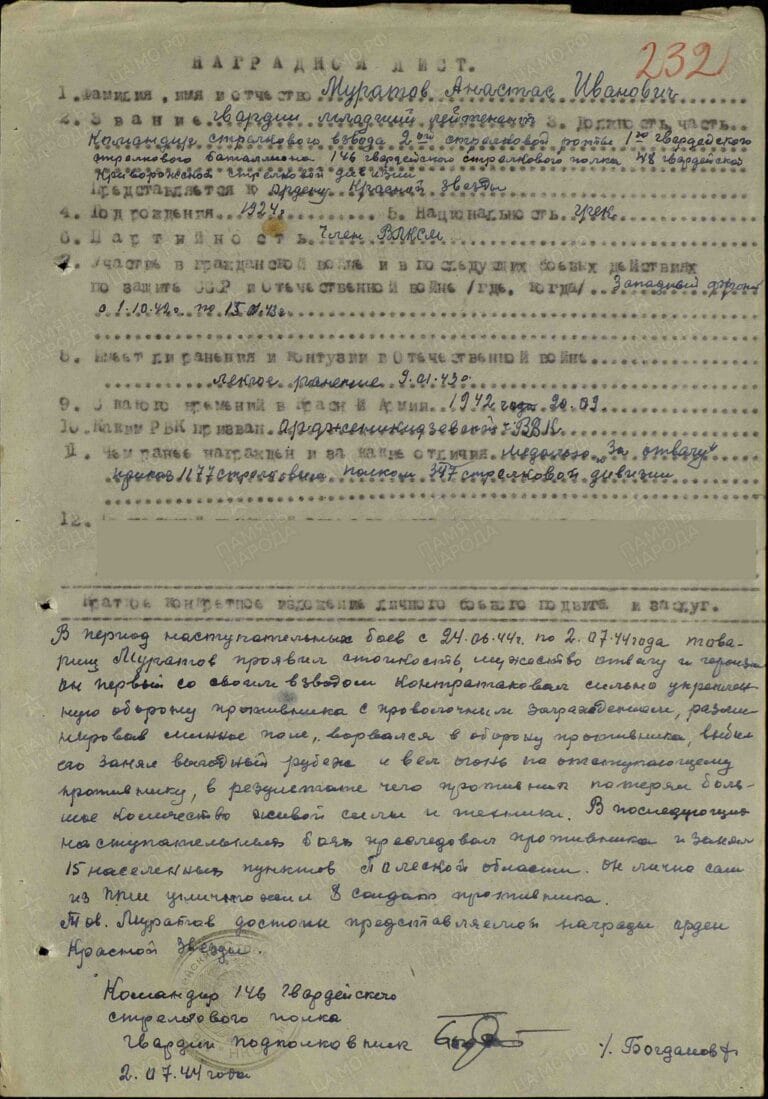 232
НАГРАДНОЙ ЛИСТ.
1. Фамилия, имя и отчество Муратов Анастас Иванович
2. Звание гвардии младший лейтенант 3. Должность, часть
Командир стрелкового взвода 2ой стрелковой роты 1го гвардейского
стрелкового баталиона 146 гвардейского стрелкового полка 48 гвардейской
Криворожской стрелковой дивизии
Представляется к ордену Красной Звезды
4. Год рождения 1924г. 5. Национальность грек
6. Партийность член ВЛКСМ
7. Участие в гражданской войне и в последующих боевых действиях
по защите СССР и Отечественной войне /где, когда/ Западный фронт
с 1.10.42г. по 15.01.43г.
8. Имеет ли ранения и контузии в Отечественной войне
легкое ранение 9.01.43г.
9. С какого времени в Красной Армии 1942 года 20.09.
10. Каким РВК призван Орджоникидзевской РВК
11. Чем ранее награжден и за какие отличия Медалью „За отвагу"
приказ 1177 стрелковым полком 347 стрелковой дивизии
12.
Краткое конкретное изложение личного боевого подвига и заслуг.
В период наступательных боев с 24.06.44г. по 2.07.44 года това-
рищ Муратов проявил стойкость, мужество отвагу и героизм
он первый со своим взводом контратаковал сильно укреплен-
ную оборону противника с проволочным заграждением, разми-
нировав минное поле, ворвался в оборону противника, выбил
его занял выгодный рубеж и вел огонь по отступающему
противнику, в результате чего противник потерял боль-
шое количество живой силы и техники. В последующих
наступательных боях преследовал противника и занял
15 населенных пунктов Полеской области. он лично сам
из ППШ уничтожил 8 солдат противника.
Тов. Муратов достоин представляемой награды орден
Красной Звезды.
Командир 146 Гвардейского
стрелкового полка
гвардии подполковник /. Богданов /.
2.07.44 года
ПАМЯТЬ НАРОДА
ПАМЯТЬ НАРОДА
ПАМЯТЬ НАРОДА
ЦАМО.РФ